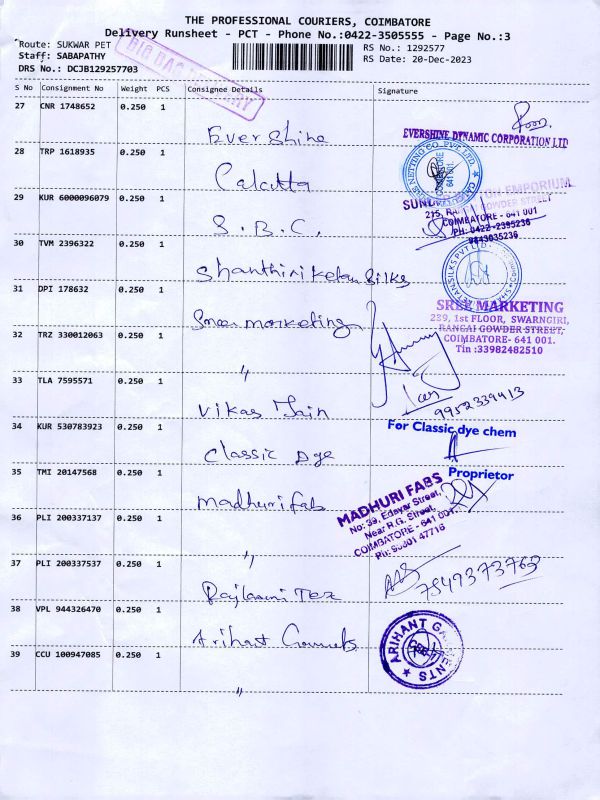 THE PROFESSIONAL COURIERS, COIMBATORE
Delivery Runsheet - PCT - Phone No.:0422-3505555 - Page No.:3
Route: SUKWAR PET
RS No.: 1292577
Staff: SABAPATHY
RS Date: 20-Dec-2023
DRS No.: DCJB129257703
BIG BAG
S No Consignment No Weight PCS Consignee Details Signature
27 CNR 1748652 0.250 1
Evershine
EVERSHINE DYNAMIC CORPORATION LTD
28 TRP 1618935 0.250 1
Calcutta
29 KUR 6000096079 0.250 1
S.B.C.
EMPORIUM
GOWDER STREET
COIMBATORE - 641 001
PH: 0422-2395236
9843035236
30 TVM 2396322 0.250 1
Shanthiniketan Silks
31 DPI 178632 0.250 1
Sree marketing
SREE MARKETING
239, 1st FLOOR, SWARNGIRI,
RANGAI GOWDER STREET,
COIMBATORE- 641 001.
Tin :33982482510
32 TRZ 330012063 0.250 1
"
33 TLA 7595571 0.250 1
Vikas Jain
9952339413
34 KUR 530783923 0.250 1
Classic Dye
For Classic dye chem
Proprietor
35 TMI 20147568 0.250 1
Madhuri fab
MADHURI FABS
No: 39, Edayar Street,
Near R.G. Street,
COIMBATORE - 641 001.
Ph: 98001 47716
36 PLI 200337137 0.250 1
"
37 PLI 200337537 0.250 1
Rajlaxmi Tex
7549373763
38 VPL 944326470 0.250 1
Arihant Garments
ARIHANT GARMENTS
39 CCU 100947085 0.250 1
"